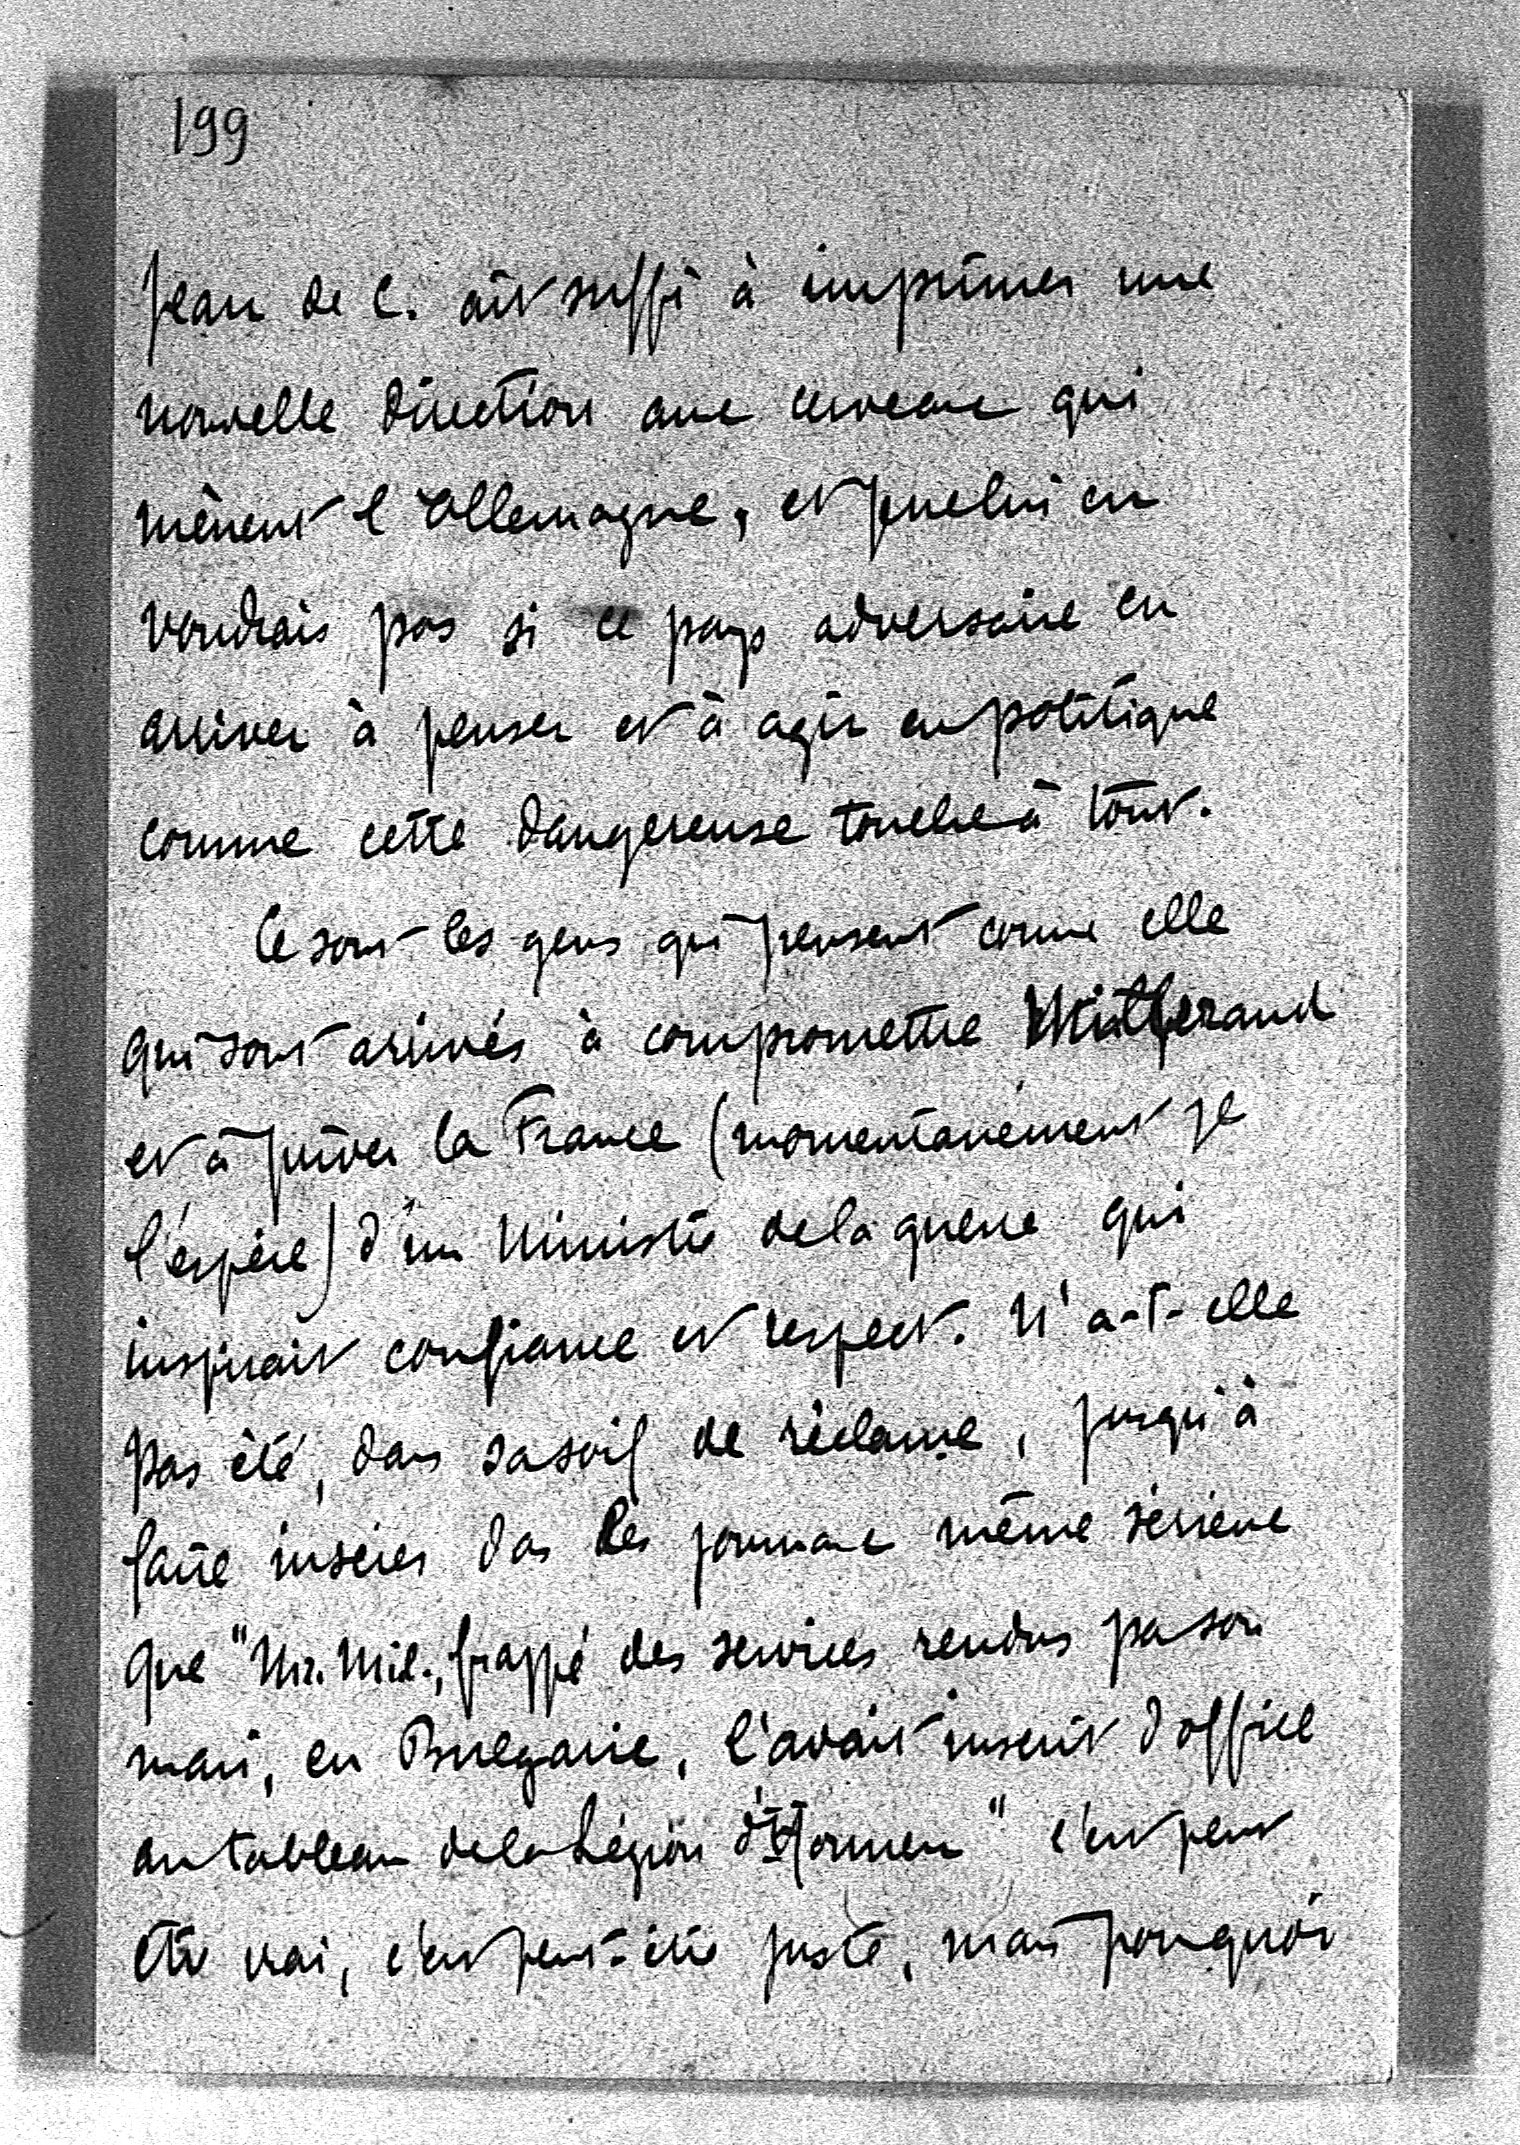 199
Jean de C. ait suffi à imprimer une
nouvelle direction aux cerveaux qui
mènent l'Allemagne, et je ne lui en
voudrais pas si ce pays adversaire en
arriver à penser et à agir en politique
comme cette dangereuse touche à tout.
Ce sont les gens qui pensent comme elle
qui sont arrivés à compromettre Millerand
et à priver la France (momentanément je
l'espère) d'un Ministre de la guerre qui
inspirait confiance et respect. N'a-t-elle
pas été, dans sa soif de réclame, jusqu'à
faire insérer dans les journaux même sérieux
que "Mr. Mil., frappé des services rendus par son
mari, en Bulgarie, l'avait inscrit d'office
au tableau de la Légion d'Honneur" c'est peut
être vrai, c'est peut-être juste, mais pourquoi